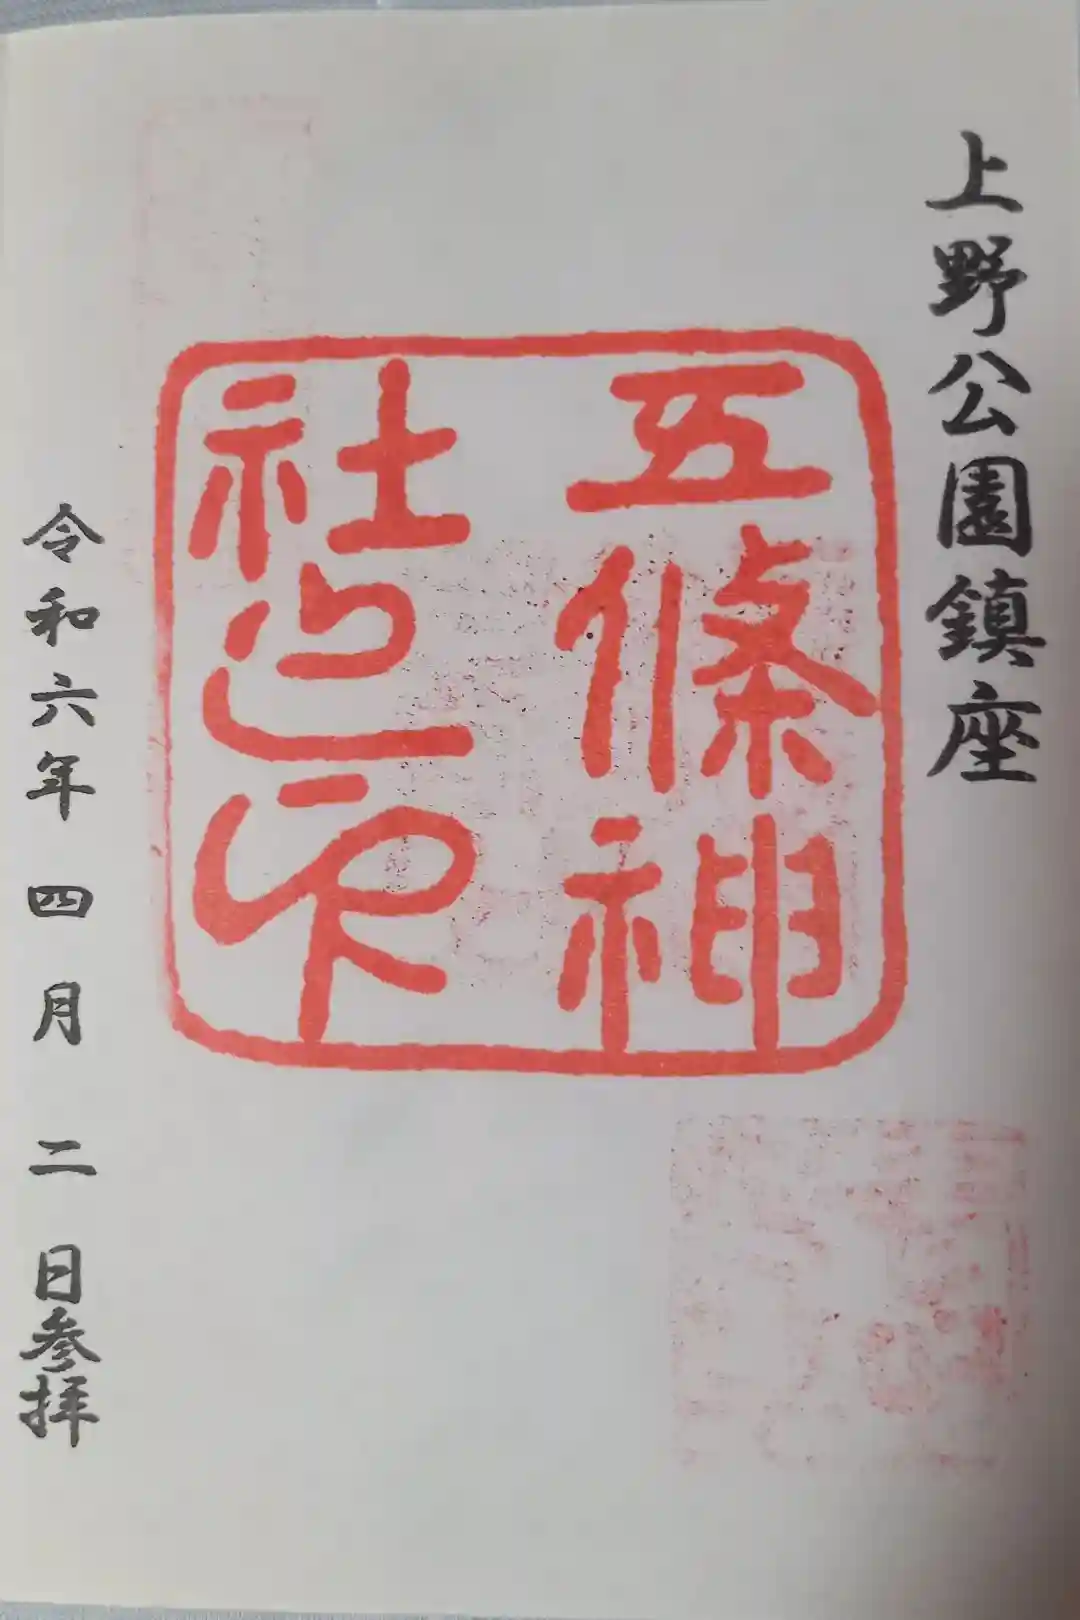 上野公園鎮座
五條神
社之印
令和六年四月二日参拝